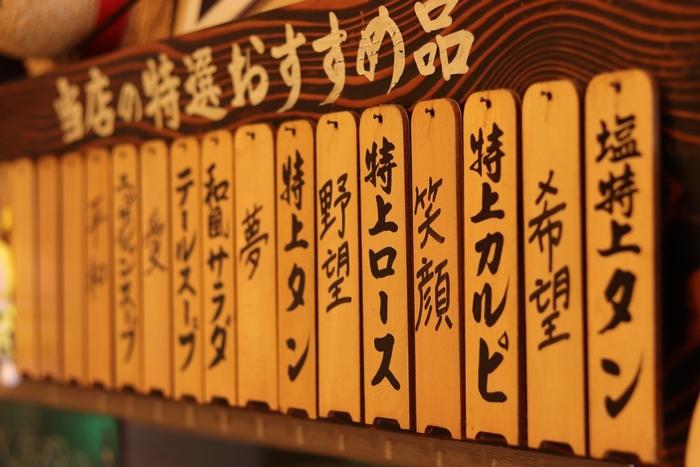 当店の特選おすすめ品
塩特上タン
希望
特上カルピ
笑顔
特上ロース
野望
特上タン
夢
和風サラダ
テールスープ
愛
平和